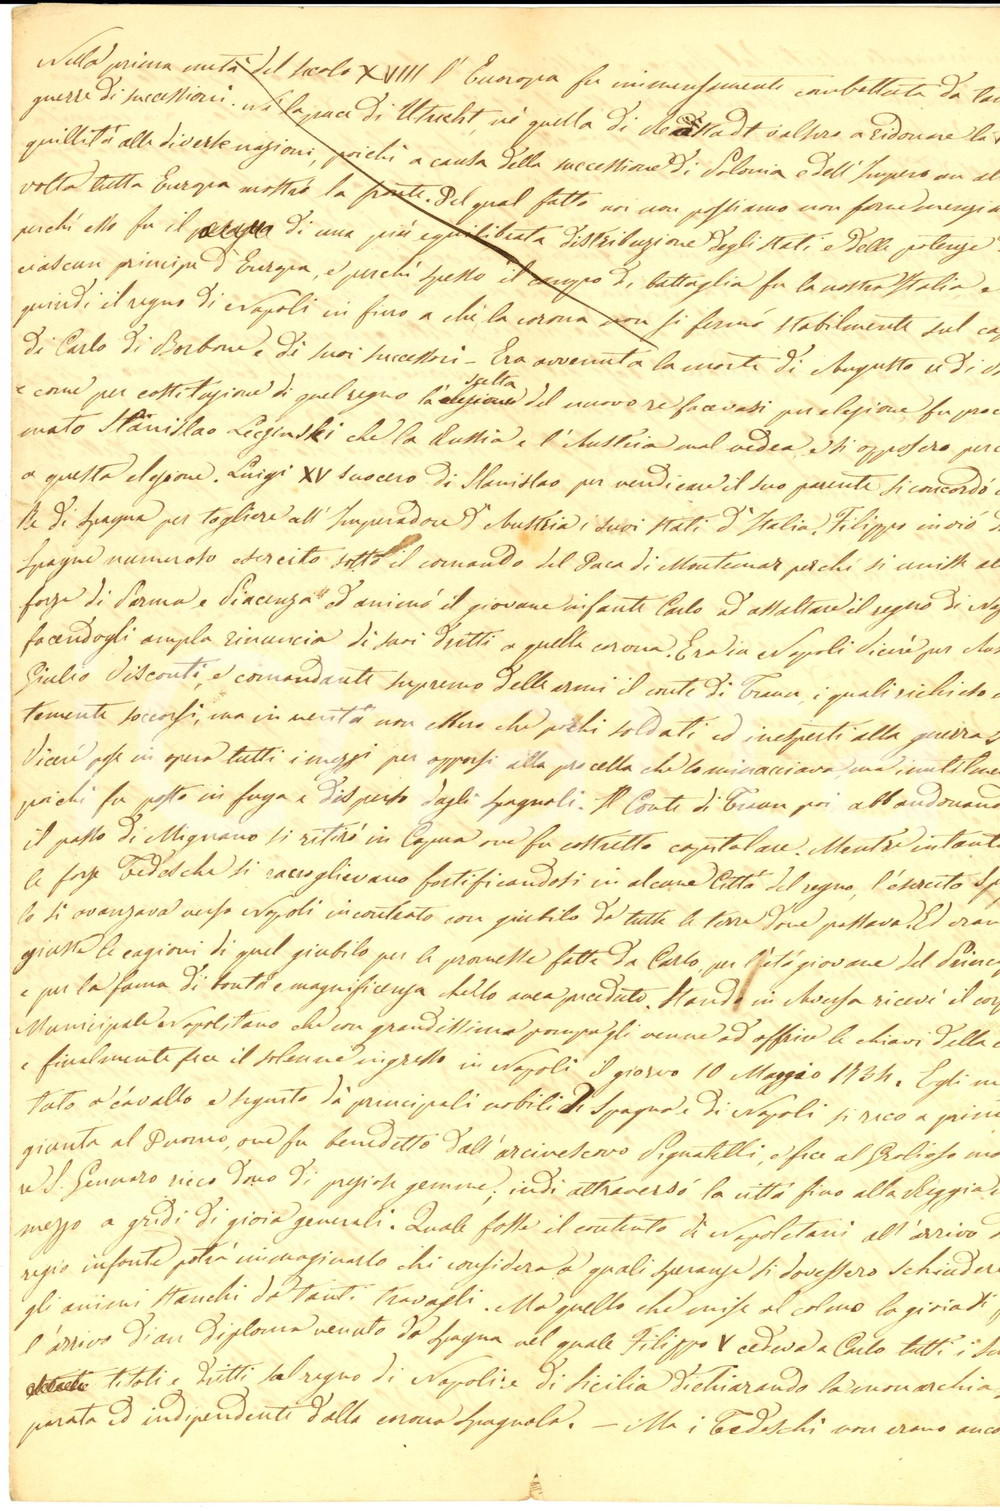 Nella prima metà del secolo XVIII l' Europa fu immensamente combattuta da
guerre di successioni. Nè la pace di Utrecht, nè quella di Rastadt valsero a ridonare la
quillità alle diverse nazioni, poichè a causa della successione di Polonia e dell' Impero
volta tutta Europa mostrò la fronte. Del qual fatto noi non possiamo non farne
perchè esso fu il di una più equilibrata distribuzione degli stati e delle potenze
ciascun principe d' Europa, e perchè spesso il campo di battaglia fu la nostra Italia e
quindi il regno di Napoli in fino a chè la corona non si fermò stabilmente sul
di Carlo di Borbone e di suoi successori – Era avvenuta la morte di Augusto
e come per costituzione di quel regno la scelta del nuovo re facevasi per elezione fu
mato Stanislao Leczinski che la Russia e l' Austria mal vedea, e si opposero
a questa elezione. Luigi XV suocero di Stanislao per vendicare il suo parente si concordò
Re di Spagna per togliere all' Imperadore d' Austria i suoi stati d' Italia. Filippo inviò
Spagne numeroso esercito sotto il comando del Duca di Montemar perchè si unisse
forze di Parma e Piacenza ed animò il giovane infante Carlo ad assaltare il regno di
facendogli ampla rinuncia di suoi dritti a quella corona. Era in Napoli Vicerè per
Giulio Visconti, e comandante supremo delle armi il conte di Traun, i quali
temente soccorsi, ma in verità non ebbero che pochi soldati ed inesperti alla guerra.
Vicerè pose in opera tutti i mezzi per opporsi alla procella che lo minacciava ma
poichè fu posto in fuga e disperso dagli spagnuoli. Il Conte di Traun poi abbandonando
il passo di Mignano si ritirò in Capua ove fu costretto capitolare. Mentre
le forze Tedesche si raccoglievano fortificandosi in alcune Città del regno, l'esercito
lo si avanzava verso Napoli incontrato con giubilo da tutte le terre dove passava. Ed
giuste le cagioni di quel giubilo per le promesse fatte da Carlo, per l'età giovane del
e per la fama di bontà e magnificenza che lo avea preceduto. Stando in Aversa ricevè il
Municipale Napolitano che con grandissima pompa gli venne ad offrire le chiavi della
e finalmente fece il solenne ingresso in Napoli il giorno 10 Maggio 1734. Egli
tato a cavallo e seguito da principali nobili di Spagna e di Napoli si recò a
giunta al Duomo, ove fu benedetto dall' arcivescovo Pignatelli, e fece al
re S. Gennaro ricco dono di preziose gemme; indi attraversò la città fino alla Reggia
mezzo a gridi di gioia generali. Quale fosse il contento di Napoletani all' arrivo
regio infante potrà immaginarlo chi considera a quali speranze si dovessero schiudere
gli animi stanchi da tanti travagli. Ma quello che mise al colmo la gioia
l' arrivo di un diploma venuto da Spagna nel quale Filippo V cedeva a Carlo tutti i
titoli e dritti sul regno di Napoli e di Sicilia dichiarando la monarchia
parata ed indipendente dalla corona Spagnola. – Ma i Tedeschi non erano